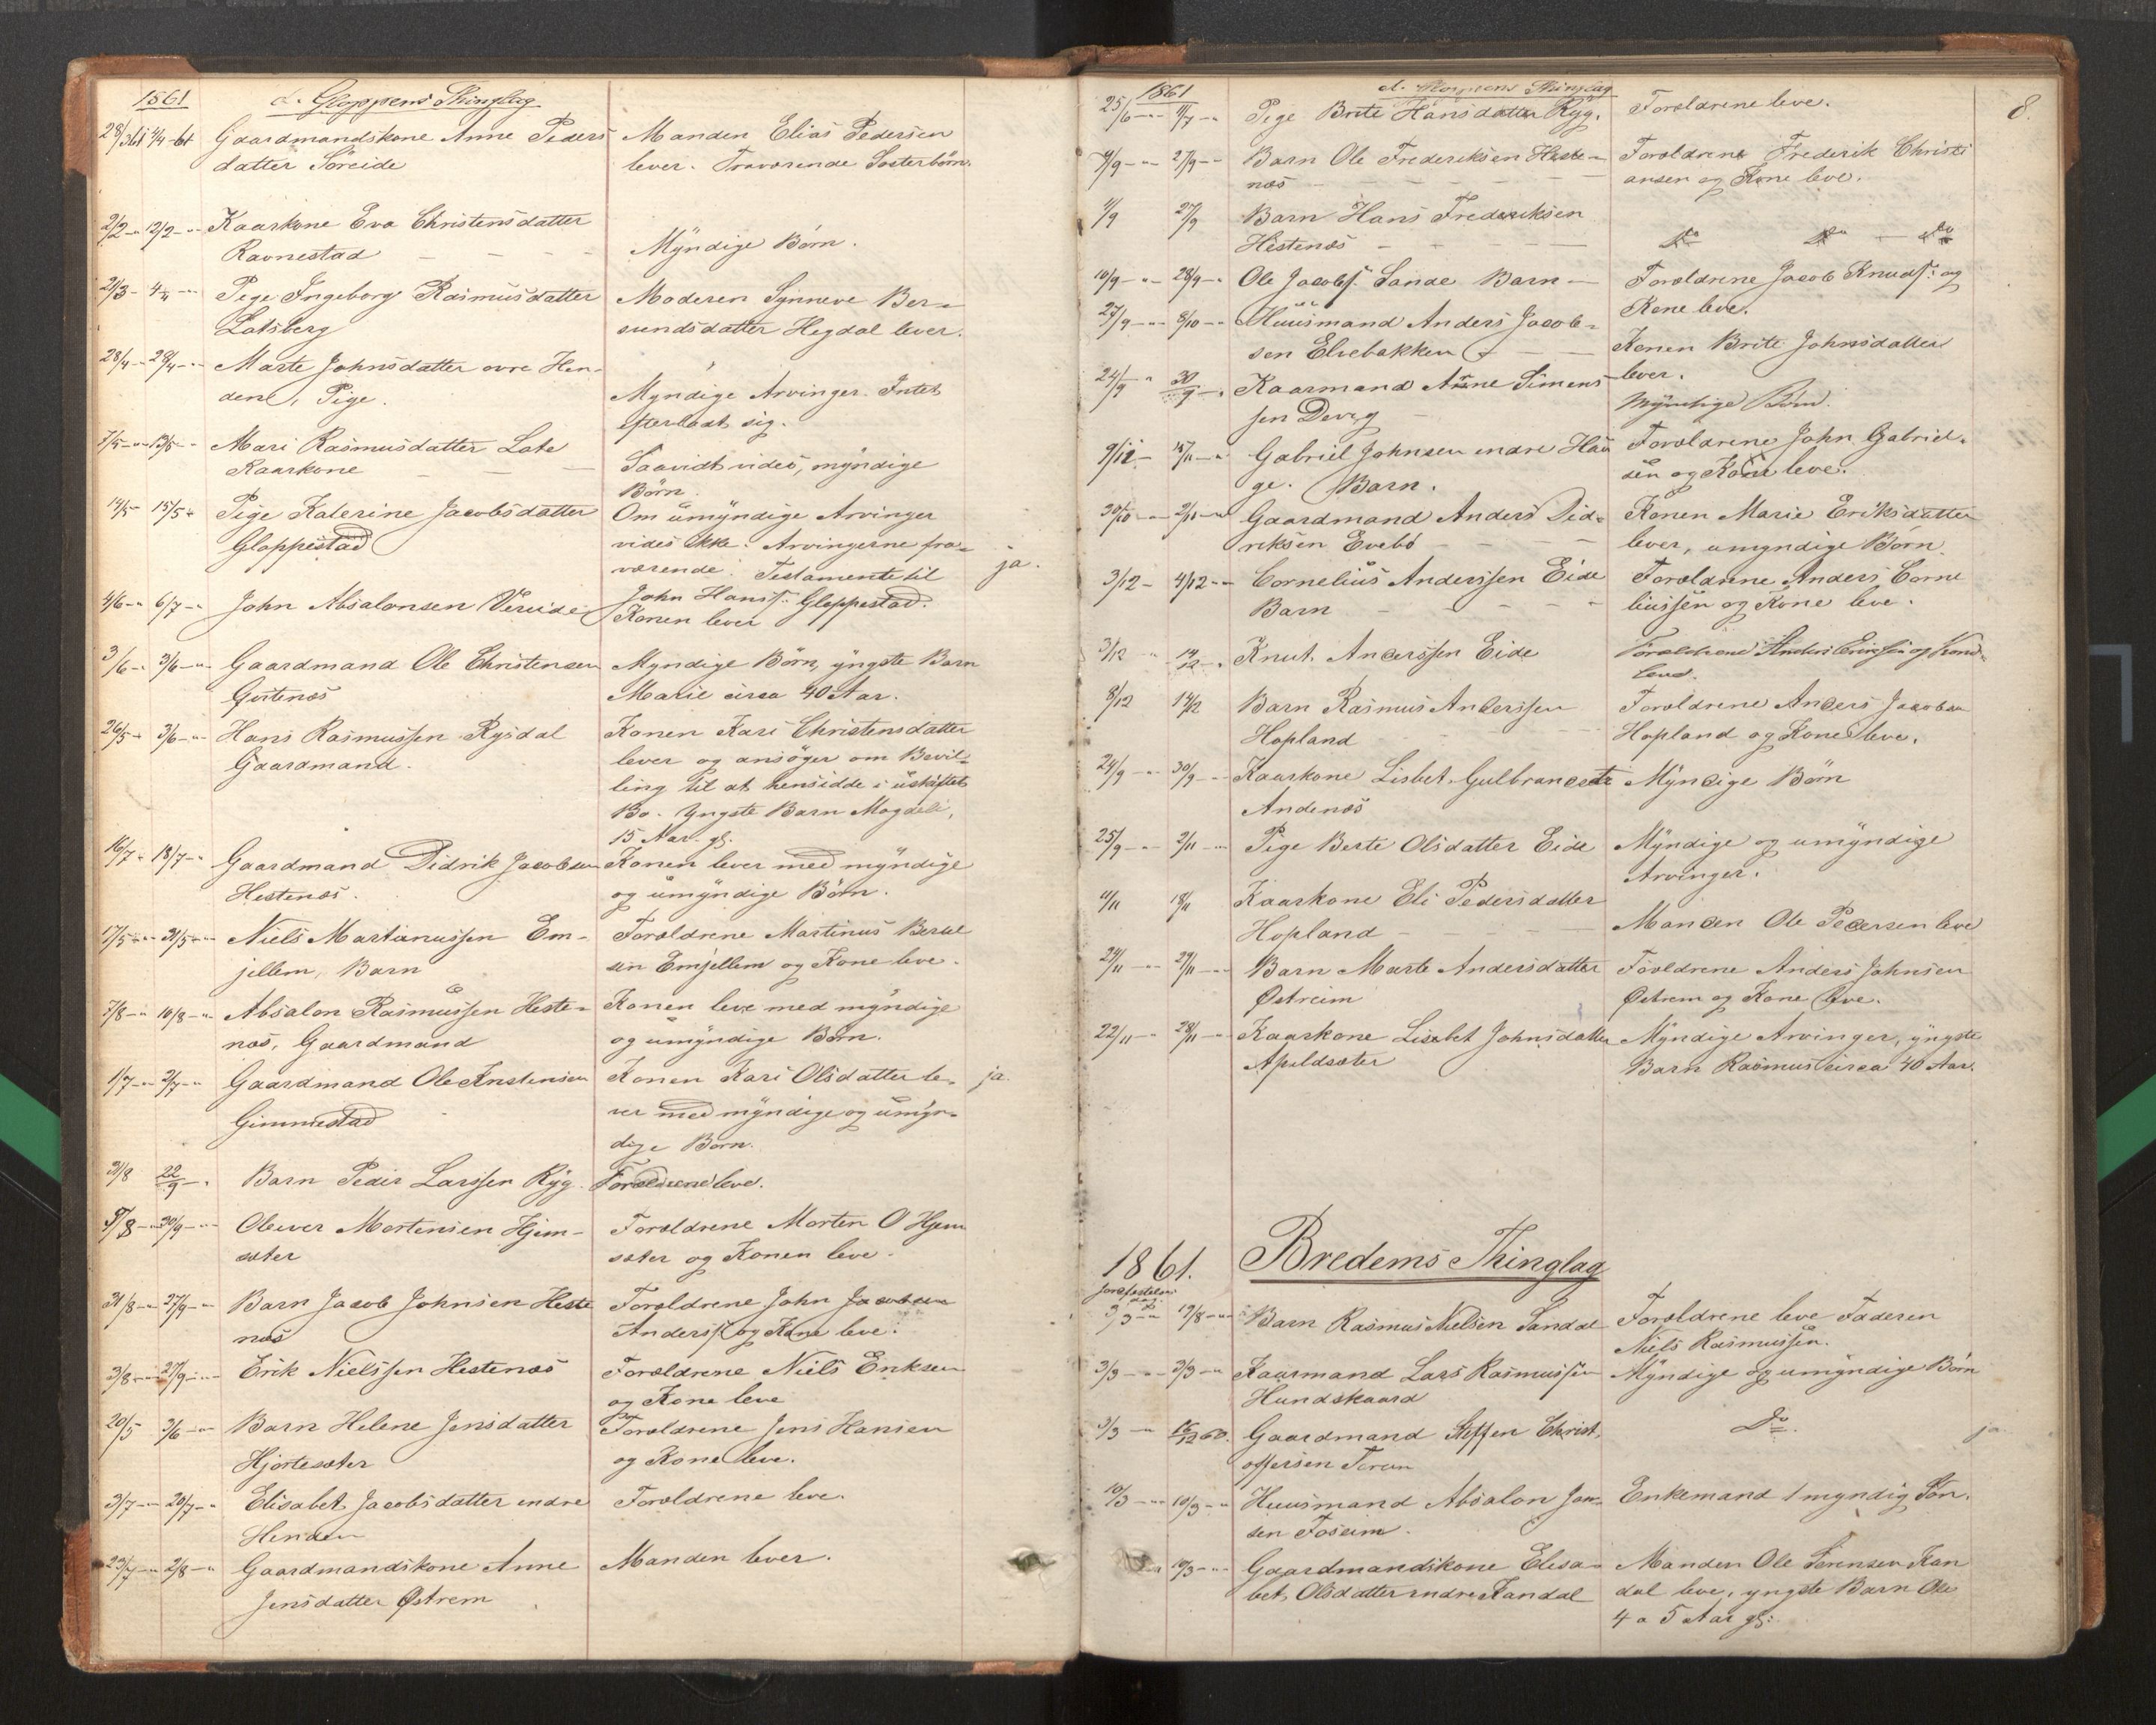 1861 d. Gloppens Thinglag
28/3 61 4/4-61 Gaardmandskone Anne Peders Manden Elias Pedersen
datter Söreide lever. Fraværende Søsterbörn.
2/2 12/2 Kaarkone Eva Christensdatter
Ravnestad Myndige Börn.
2/3 4/4 Pige Ingeborg Rasmusdatter Moderen Synneve Ber-
Lotsberg sundsdatter Hegdal lever.
28/4 29/4 Marte Johnsdatter øvre Hen-
den, Pige. Myndige Arvinger. Intet
efterladt sig.
7/5 13/5 Mari Rasmusdatter Lote
Kaarkone Saavidt vides, myndige
Börn.
14/5 15/5 Pige Katerine Jacobsdatter Om umyndige Arvinger
Gloppestad vides ikke. Arvingerne fra-
værende. Testamente til ja.
John Hanss. Gloppestad.
4/6 6/7 John Absalonsen Vereide Konen lever
3/6 3/6 Gaardmand Ole Christensen Myndige Börn, yngste Barn
Gjestenæs Marie circa 40 Aar.
26/5 3/6 Hans Rasmussen Rysdal Konen Kari Christensdatter
Gaardmand. lever og ansöger om Bevil-
ling til at hensidde i uskiftet
Bo. Yngste Barn Magdeli,
15 Aar gl.
16/7 18/7 Gaardmand Didrik Jacobsen Konen lever med myndige
Hestenæs. og umyndige Börn.
17/5 31/5 Niels Martinussen Em- Forældrene Martinus Besse
jellem, Barn sen Emjellem og Kone leve.
7/8 10/8 Absalon Rasmussen Heste- Konen leve med myndige
næs, Gaardmand og umyndige Börn.
1/7 2/7 Gaardmand Ole Anstensen Konen Kari Olsdatter le- ja.
Gimmestad ver med myndige og umyn-
dige Børn.
31/8 22/9 Barn Peder Larssen Ryg. Forældrene leve.
5/8 30/9 Oliver Mortensen Hjem- Forældrene Morten O Hjem
sæter sæter og Konen leve.
31/8 27/9 Barn Jacob Johnsen Heste Forældrene John Jacobsen
næs Anderss. og Kone leve.
3/8 27/9 Erik Nielssen Hestenæs Forældrene Niels Eriksen
og Kone leve
20/5 3/6 Barn Helene Jensdatter Forældrene Jens Hansen
Hjortesæter og Kone leve.
3/7 20/7 Elisabet Jacobsdatter indre Forældrene leve.
Henden
23/7 2/8 Gaardmandskone Anne Manden lever.
Jensdatter Østrem
1861 d. Gloppens Thinglag 8.
25/6 11/7 Pige Brite Hansdatter Ryg. Forældrene leve.
9/9 27/9 Barn Ole Frederiksen Heste- Forældrene Frederik Christi
næs ansen og Kone leve.
11/9 27/9 Barn Hans Frederiksen
Hestenæs Do Do Do
10/9 28/9 Ole Jacobs. Sande Barn Forældrene Jacob Knuds. og
Kone leve.
27/9 8/10 Huusmand Anders Jacob-
sen Elvebakken Konen Brite Johnsdatter
lever.
24/9 30/9 Kaarmand Anne Simens
sen Devig Myndige Börn.
9/12 15/11 Gabriel Johnsen indre Hau Forældrene John Gabriel-
ge. Barn. sen og Kone leve.
30/10 2/11 Gaardmand Anders Did- Konen Marie Eriksdatter
riksen Evebö lever, umyndige Børn.
3/12 4/12 Cornelius Anderssen Eide Forældrene Anders Corne
Barn liussen og Kone leve.
3/12 14/12 Knut Anderssen Eide Forældrene Anders og Kone
leve.
8/12 14/12 Barn Rasmus Anderssen Forældrene Anders Jacobsen
Hopland Hopland og Kone leve.
24/9 30/9 Kaarkone Lisbet Gulbrandsdtr Myndige Börn
Andenæs
25/9 2/11 Pige Berte Olsdatter Eide Myndige og umyndige
Arvinger.
11/11 18/11 Kaarkone Eli Pedersdatter
Hopland Manden Ole Pedersen leve
24/11 29/11 Barn Marte Andersdatter Forældrene Anders Johnsen
Østreim Østrem og Kone leve.
22/11 28/11 Kaarkone Lisabet Johnsdatter Myndige Arvinger, yngste
Apeldsæter Barn Rasmus circa 40 Aar.
1861. Bredems Thinglag
3/3 19/8 Barn Rasmus Nielsen Sandal Forældrene leve Faderen
Niels Rasmussen.
3/3 3/3 Kaarmand Lars Rasmussen Myndige og umyndige Börn
Hundskaard
3/3 16/12 60. Gaardmand Steffen Christ- Do. ja
offersen
10/3 10/3 Huusmand Absalon Jen- Enkemand 1 myndig Søn.
sen Foseim.
10/3 Gaardmandskone Elisa- Manden Ole Sörensen Kan
bet Olsdatter indre Kandal dal leve, yngste Barn Ole
4 a 5 Aar gl.